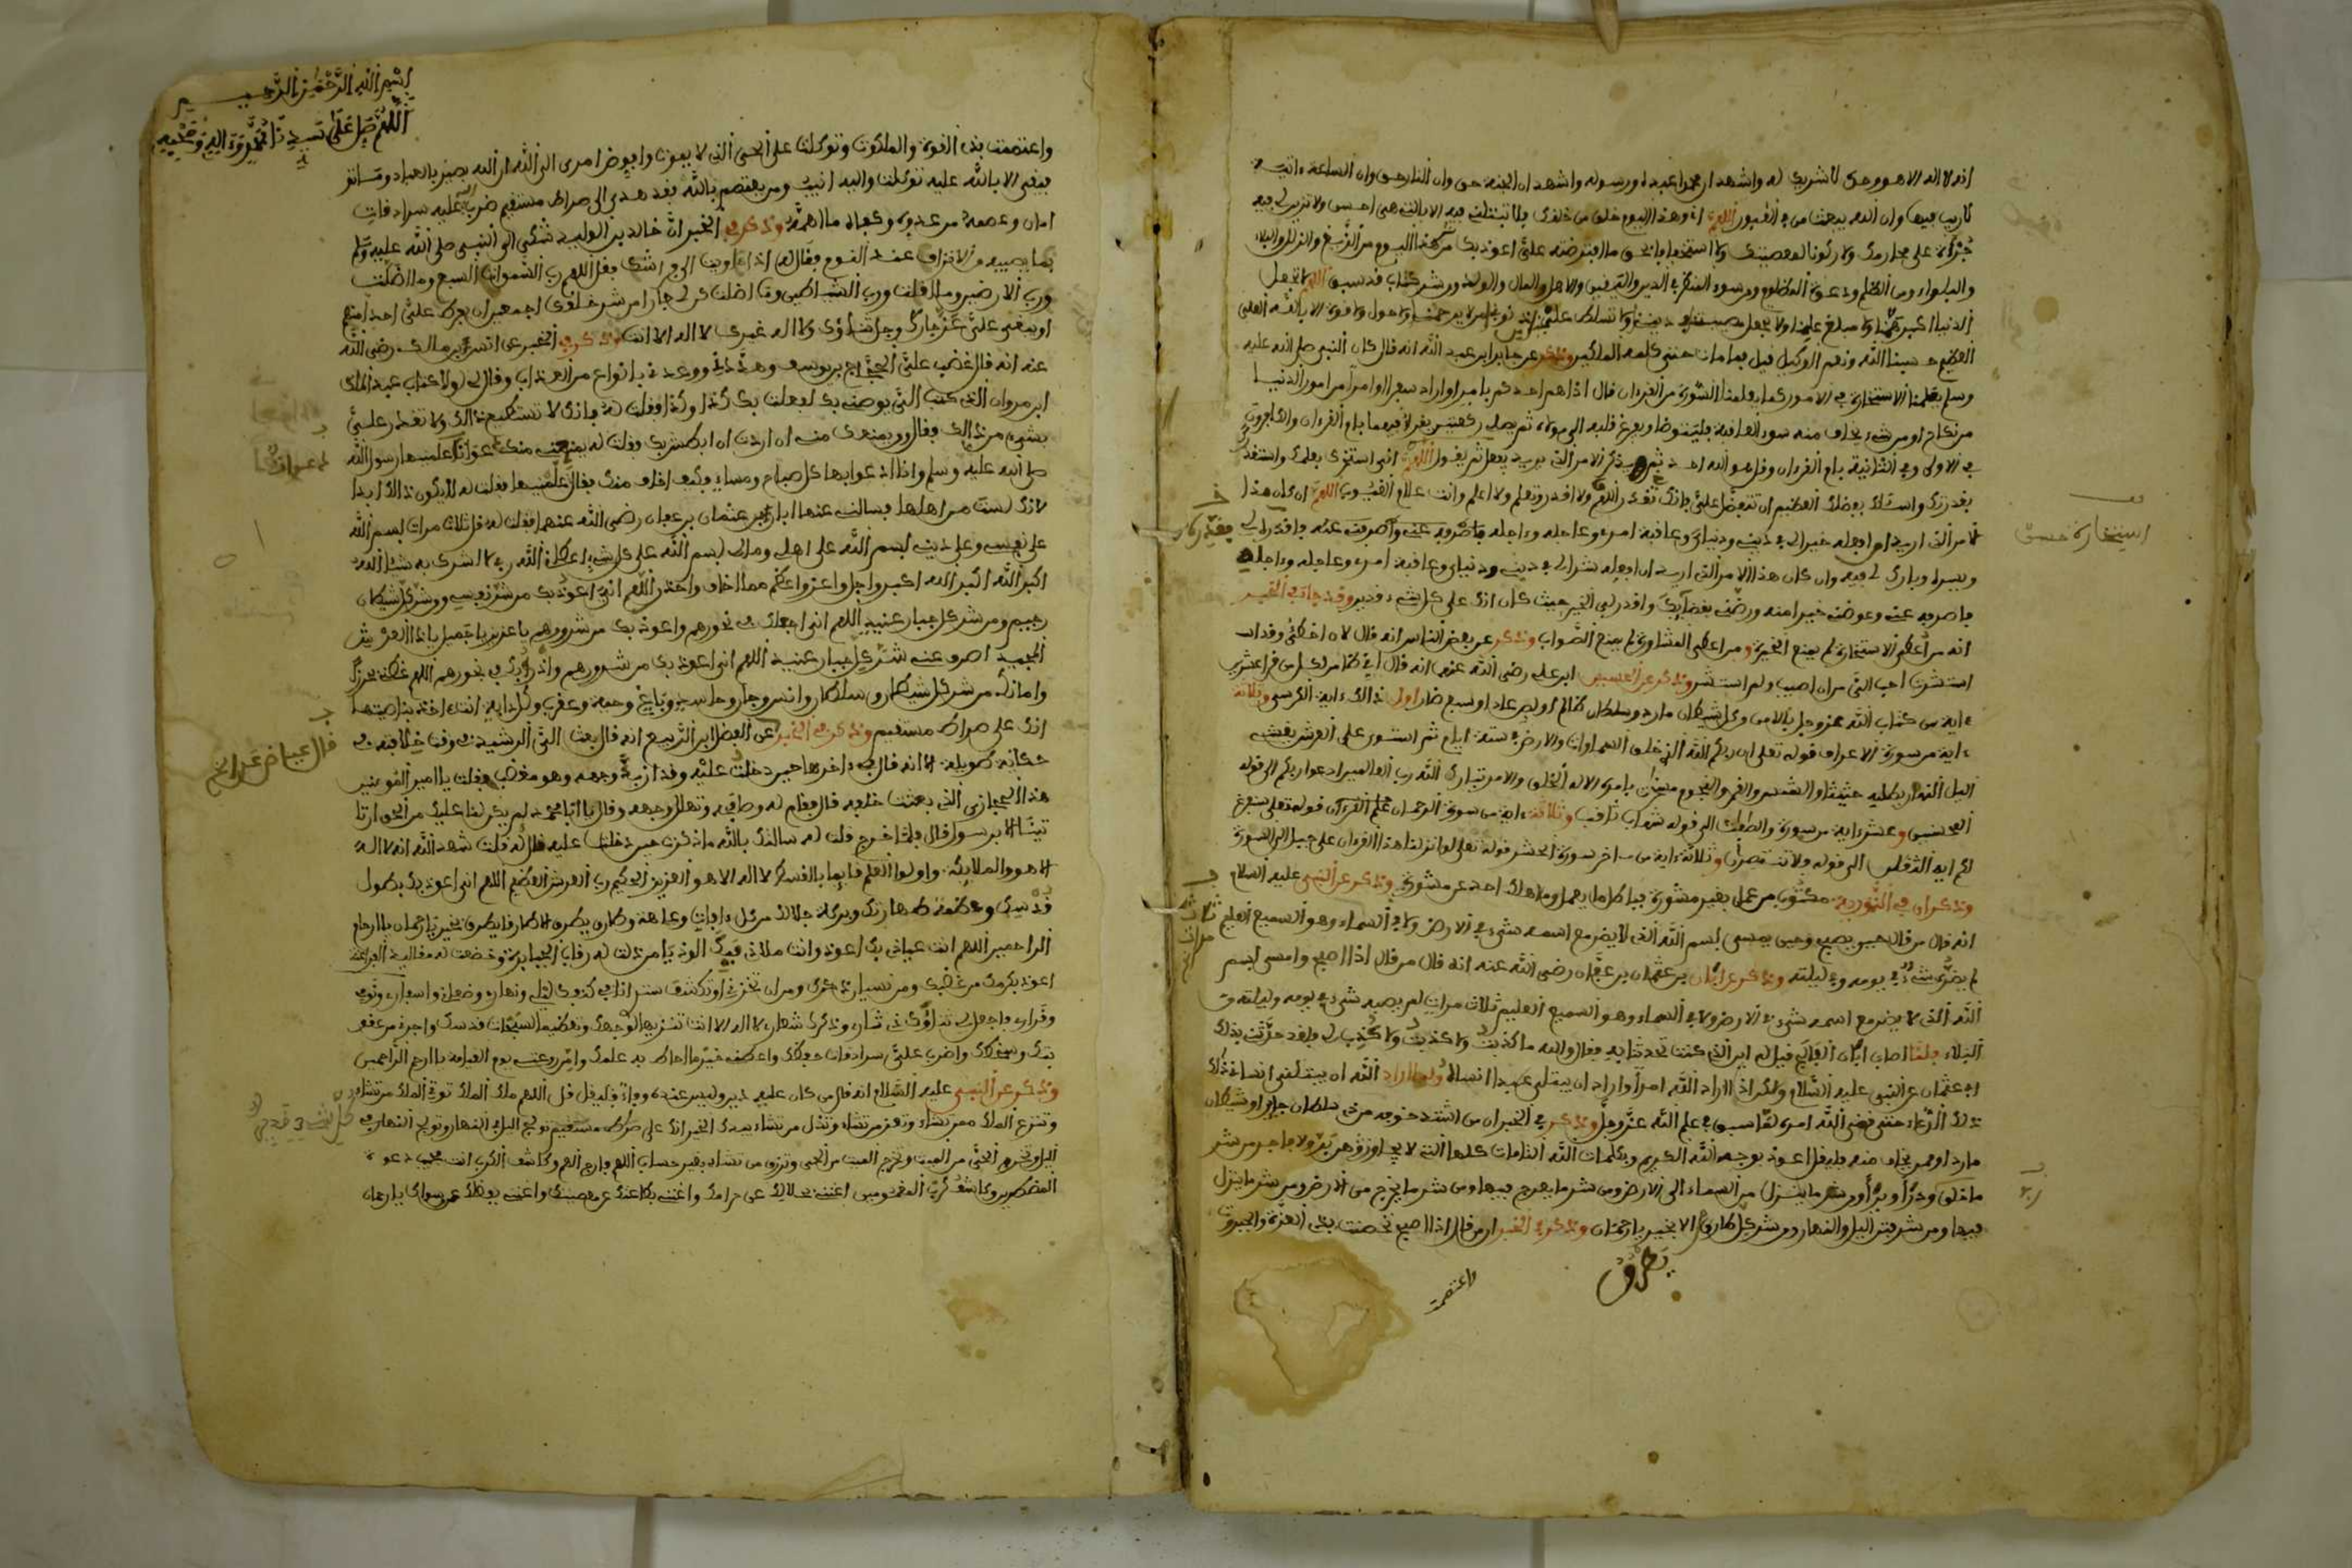 انه لا اله الا هو وحده لا شريك له واشهد ان محمدا عبده ورسوله واشهد ان الجنة حق وان النار حق وان الساعة ءاتية
لا ريب فيها وان الله يبعث من في القبور اللهم ان هذا اليوم خلق من خلقك فلا تبتلني فيه الا بالتي هي احسن ولا تزين لي فيه
جرأة على محارمك ولا ركونا لمعصيتك ولا استخفافا بحق ما افترضته علي اعوذ بك من هذا اليوم من الزيغ والزلل والبلاء
والبلواء ومن الظلم ودعوة المظلوم ومن سوء المنظر في الدين والنفس والاهل والمال والولد ومن شر كتاب قد سبق اللهم لا تجعل
الدنيا اكبر همنا ولا مبلغ علمنا ولا تجعل مصيبتنا في ديننا ولا تسلط علينا بذنوبنا من لا يرحمنا ولا حول ولا قوة الا بالله العلي
العظيم حسبنا الله ونعم الوكيل وذكر عن جابر ابن عبد الله انه قال كان النبي صلى الله عليه
وسلم يعلمنا الاستخارة في الامور كما يعلمنا السورة من القرءان قال اذا هم احدكم بامر او اراد سفرا او امرا من امور الدنيا
من نكاح او من شيء يخاف منه سوء العاقبة فليتوضا ويفرغ قلبه الى مولاه ثم يصلي ركعتين يقرأ فيهما بام القرءان والكافرون
في الاولى وفي الثانية بام القرءان وقل هو الله احد ثم يذكر الامر الذي يريد يفعل ثم يقول اللهم اني استخيرك بعلمك واستقدرك
بقدرتك واسئلك بفضلك العظيم ان تتفضل علي فانك تقدر ولا اقدر وتعلم ولا اعلم وانت علام الغيوب اللهم ان كان هذا
الامر الذي اريد ان افعله خير لي في ديني ودنياي وعاقبة امري وعاجله وءاجله
ويسره وبارك لي فيه وان كان هذا الامر الذي اريد ان افعله شر لي في ديني ودنياي وعاقبة امري وعاجله وءاجله
فاصرفه عني وعوضني خيرا منه ورضني بقضائك واقدر لي الخير حيث كان انك على كل شيء قدير وقد جاء في الخبر
انه من اعطي الاستخارة لم يمنع الخيرة ومن اعطي المشاورة لم يمنع الصواب وذكر عن بعض الناس انه قال لان اخطئ وقد
استشرت احب الي من ان اصيب ولم استشر وذكر عن الحسين ابن علي رضي الله عنهما انه قال
ءاية من كتاب الله عز وجل من كل شيطان مارد وسلطان ظالم او لص عاد او سبع ضار اول ذلك ءاية الكرسي وثلاثة
ءاية من سورة الاعراف قوله تعلى ان ربكم الله الذي خلق السماوات والارض في ستة ايام ثم استوى على العرش يغشي
اليل النهار يطلبه حثيثا والشمس والقمر والنجوم مسخرات بامره الا له الخلق والامر تبارك الله رب العالمين ادعوا ربكم الى قوله
المحسنين وعشر ءاية من سورة والصافات الى قوله شهاب ثاقب وثلاثة ءاية من سورة الرحمان قوله تعلى سنفرغ
لكم ايه الثقلان الى قوله فلا تنتصران وثلاثة ءاية من ءاخر سورة الحشر قوله تعلى لو انزلنا هذا القرءان على جبل الى السورة
وذكر ان في التورية مكتوب من عمل بغير مشورة وذكر عن النبي عليه السلام
انه قال من قال حين يصبح وحين يمسي بسم الله الذي لا يضر مع اسمه شيء في الارض ولا في السماء وهو السميع العليم
لم يضره شيء في يومه وفي ليلته وذكر عن ابان بن عثمان بن عفان رضي الله عنه انه قال من قال اذا اصبح وامسى بسم
الله الذي لا يضر مع اسمه شيء في الارض ولا في السماء وهو السميع العليم ثلاث مرات لم يصبه شيء في يومه وليلته من
البلاء فلما اصاب ابان الفالج قيل له اين الذي كنت تحدثنا به فقال والله ما كذبت ولا كذبت
عثمان عن النبي عليه السلام ولكن اذا اراد الله امرا واراد ان يبتلي عبدا انساه
ذلك الدعاء حتى قضى الله امره لما سبق في علم الله عز وجل وذكر في الخبر ان من اشتد خوفه من سلطان جائر او شيطان
مارد او من يخاف منه فليقل اعوذ بوجه الله الكريم وبكلمات الله التامات كلها التي لا يجاوزهن بر ولا فاجر من شر
ما خلق وذرأ وبرأ ومن شر ما ينزل من السماء الى الارض ومن شر ما يعرج فيها ومن شر ما يخرج من الارض ومن شر ما ينزل
فيها ومن شر فتن اليل والنهار ومن شر كل طارق الا بخير يا رحمان وذكر في الخبر ان من قال اذا اصبح تحصنت بذي العزة والجبروت
يطرق
واعتصمت
استخارة حسنة
ثلاث مرات
بسم الله الرحمن الرحيم
اللهم صل على سيدنا محمد وءاله وصحبه
واعتصمت بذي القوة والملكوت وتوكلت على الحي الذي لا يموت وافوض امري الى الله ان الله بصير بالعباد وما
توفيقي الا بالله عليه توكلت واليه انيب ومن يعتصم بالله فقد هدي الى صراط مستقيم ضرب الله عليه سرادقات
امان وعصمة من عدوه وكفاه ما اهمه وذكر في الخبر ان خالد بن الوليد شكى الى النبي صلى الله عليه وسلم
بما يصيبه من الافزاع عند النوم فقال له اذا اويت الى فراشك فقل اللهم رب السموات السبع وما اظلت
ورب الارضين وما اقلت ورب الشياطين وما اضلت كن لي جارا من شر خلقك اجمعين ان يفرط علي احد منهم
او يبغي علي عز جارك وجل ثناؤك ولا اله غيرك لا اله الا انت وذكر في الخبر عن انس بن مالك رضي الله
عنه انه قال غضب علي الحجاج بن يوسف وهددني ووعدني بانواع من العذاب وقال لي لولا كتاب عبد الملك
ابن مروان الذي كتب الي يوصيني بك لفعلت بك كذا وكذا فقلت له فانك لا تستطيع ذلك ولا تقدر علي
بشيء من ذلك فقال ومن يمنعك مني ان اردت ان ابطش بك فقلت له يمنعني منك دعوات علمنيها رسول الله
صلى الله عليه وسلم واذا ادعوا بها كل صباح ومساء فكيف اخاف منك فقال علمنيها فقلت له لا يكون ذلك ابدا
لانك لست من اهلها فسألت عنها ابان بن عثمان بن عفان رضي الله عنهم فقلت له قل ثلاث مرات بسم الله
على نفسي وعلى ديني بسم الله على اهلي ومالي بسم الله على كل شيء اعطاني الله ربي لا اشرك به شيئا الله
اكبر الله اكبر الله اكبر واجل واعز واعظم مما اخاف واحذر اللهم اني اعوذ بك من شر نفسي ومن شر كل شيطان
رجيم ومن شر كل جبار عنيد اللهم اني اجعلك في نحورهم واعوذ بك من شرورهم يا عزيز يا جميل يا ذا العرش
المجيد اصرف عني شر كل جبار عنيد اللهم اني اعوذ بك من شرورهم وادرأ بك في نحورهم
وامانك من شر كل شيطان وسلطان وانس وجان وحاسد وباغ وحية وعقرب وكل دابة انت ءاخذ بناصيتها
انك على صراط مستقيم وذكر في الخبر عن الفضل ابن الربيع انه قال بعث الي الرشيد في وقت خلافته في
حكاية طويلة الا انه قال في ءاخرها حين دخلت عليه وهو مغضب فقلت يا امير المومنين
هذا الحجازي الذي بعثت خلفه قال فقام له وصافحه وتهلل وجهه وقال يا ابا محمد لم يكن لنا عليك من الحق ان تا
تينا الا برسول قال فلما خرج قلت له سالتك بالله ما ذكرت حين دخلت عليه قال قلت شهد الله انه لا اله
الا هو والملائكة واولوا العلم قائما بالقسط لا اله الا هو العزيز الحكيم رب العرش العظيم اللهم اني اعوذ بك
قدسك وعظمة طهارتك وبركة جلالك من كل ءافة وعاهة وطارق يطرق الا طارقا يطرق بخير يا رحمان يا ارحم
الراحمين اللهم انت عياذي بك اعوذ وانت ملاذي فبك الوذ يا من ذلت له رقاب الجبابرة وخضعت له مقاليد الفراعنة
اعوذ بكرمك من غضبك ومن نسيان ذكرك ومن ان تخزني او تكشف ستري انا في كنفك ليلي ونهاري وضعني واسفاري ونومي
وقراري فاجعل لي ثناؤك دثاري وذكرك شعاري لا اله الا انت تنزيها لوجهك وتعظيما لسبحات قدسك واجرني من عقو
بتك وسخطك واضرب علي سرادقات حفظك واعطني خير ما احاط به علمك وامن روعتي يوم القيامة يا ارحم الراحمين
وذكر عن النبي عليه السلام انه قال من كان عليه دين وليس عنده وفاء فليقل اللهم ملك الملك توتي الملك من تشاء
وتنزع الملك ممن تشاء وتعز من تشاء وتذل من تشاء بيدك الخير انك على صراط مستقيم تولج اليل في النهار وتولج النهار في
اليل وتخرج الحي من الميت وتخرج الميت من الحي وترزق من تشاء بغير حساب اللهم فارج الهم وكاشف الكرب انت مجيب دعوة
المضطرين وكاشف كرب المغمومين اغنني بحلالك عن حرامك واغنني بطاعتك عن معصيتك واغنني بفضلك عمن سواك يا رحمان
كل شيء قدير